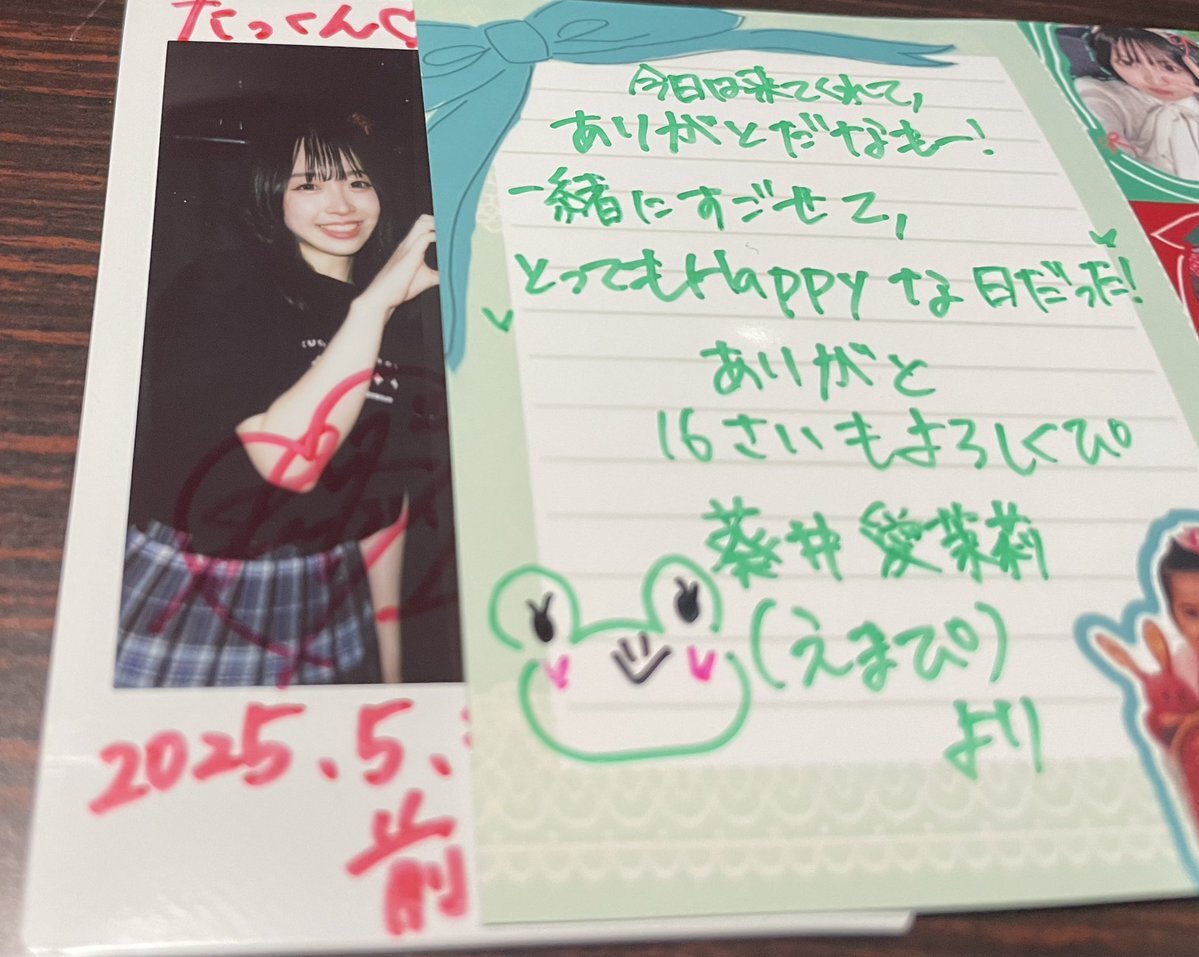 たっくん♡
2025.5.
前
今日は来てくれて,
ありがとだなもー!
一緒にすごせて,
とってもHappyな日だった!
ありがと
16さいもよろしくぴ
葵井愛茉莉
(えまぴ)
より